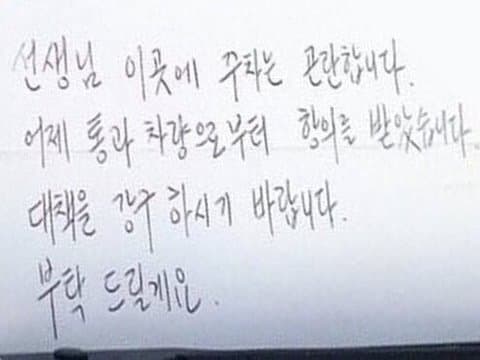 선생님 이곳에 주차는 곤란합니다.
어제 통과 차량으로부터 항의를 받았습니다.
대책을 강구 하시기 바랍니다.
부탁 드릴게요.